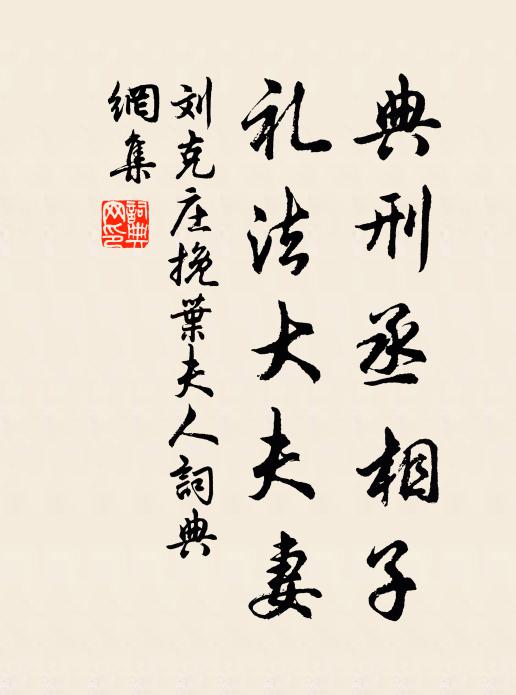 典刑丞相子
礼法大夫妻
刘克庄挽葉夫人詞典
網集
詞典
网印